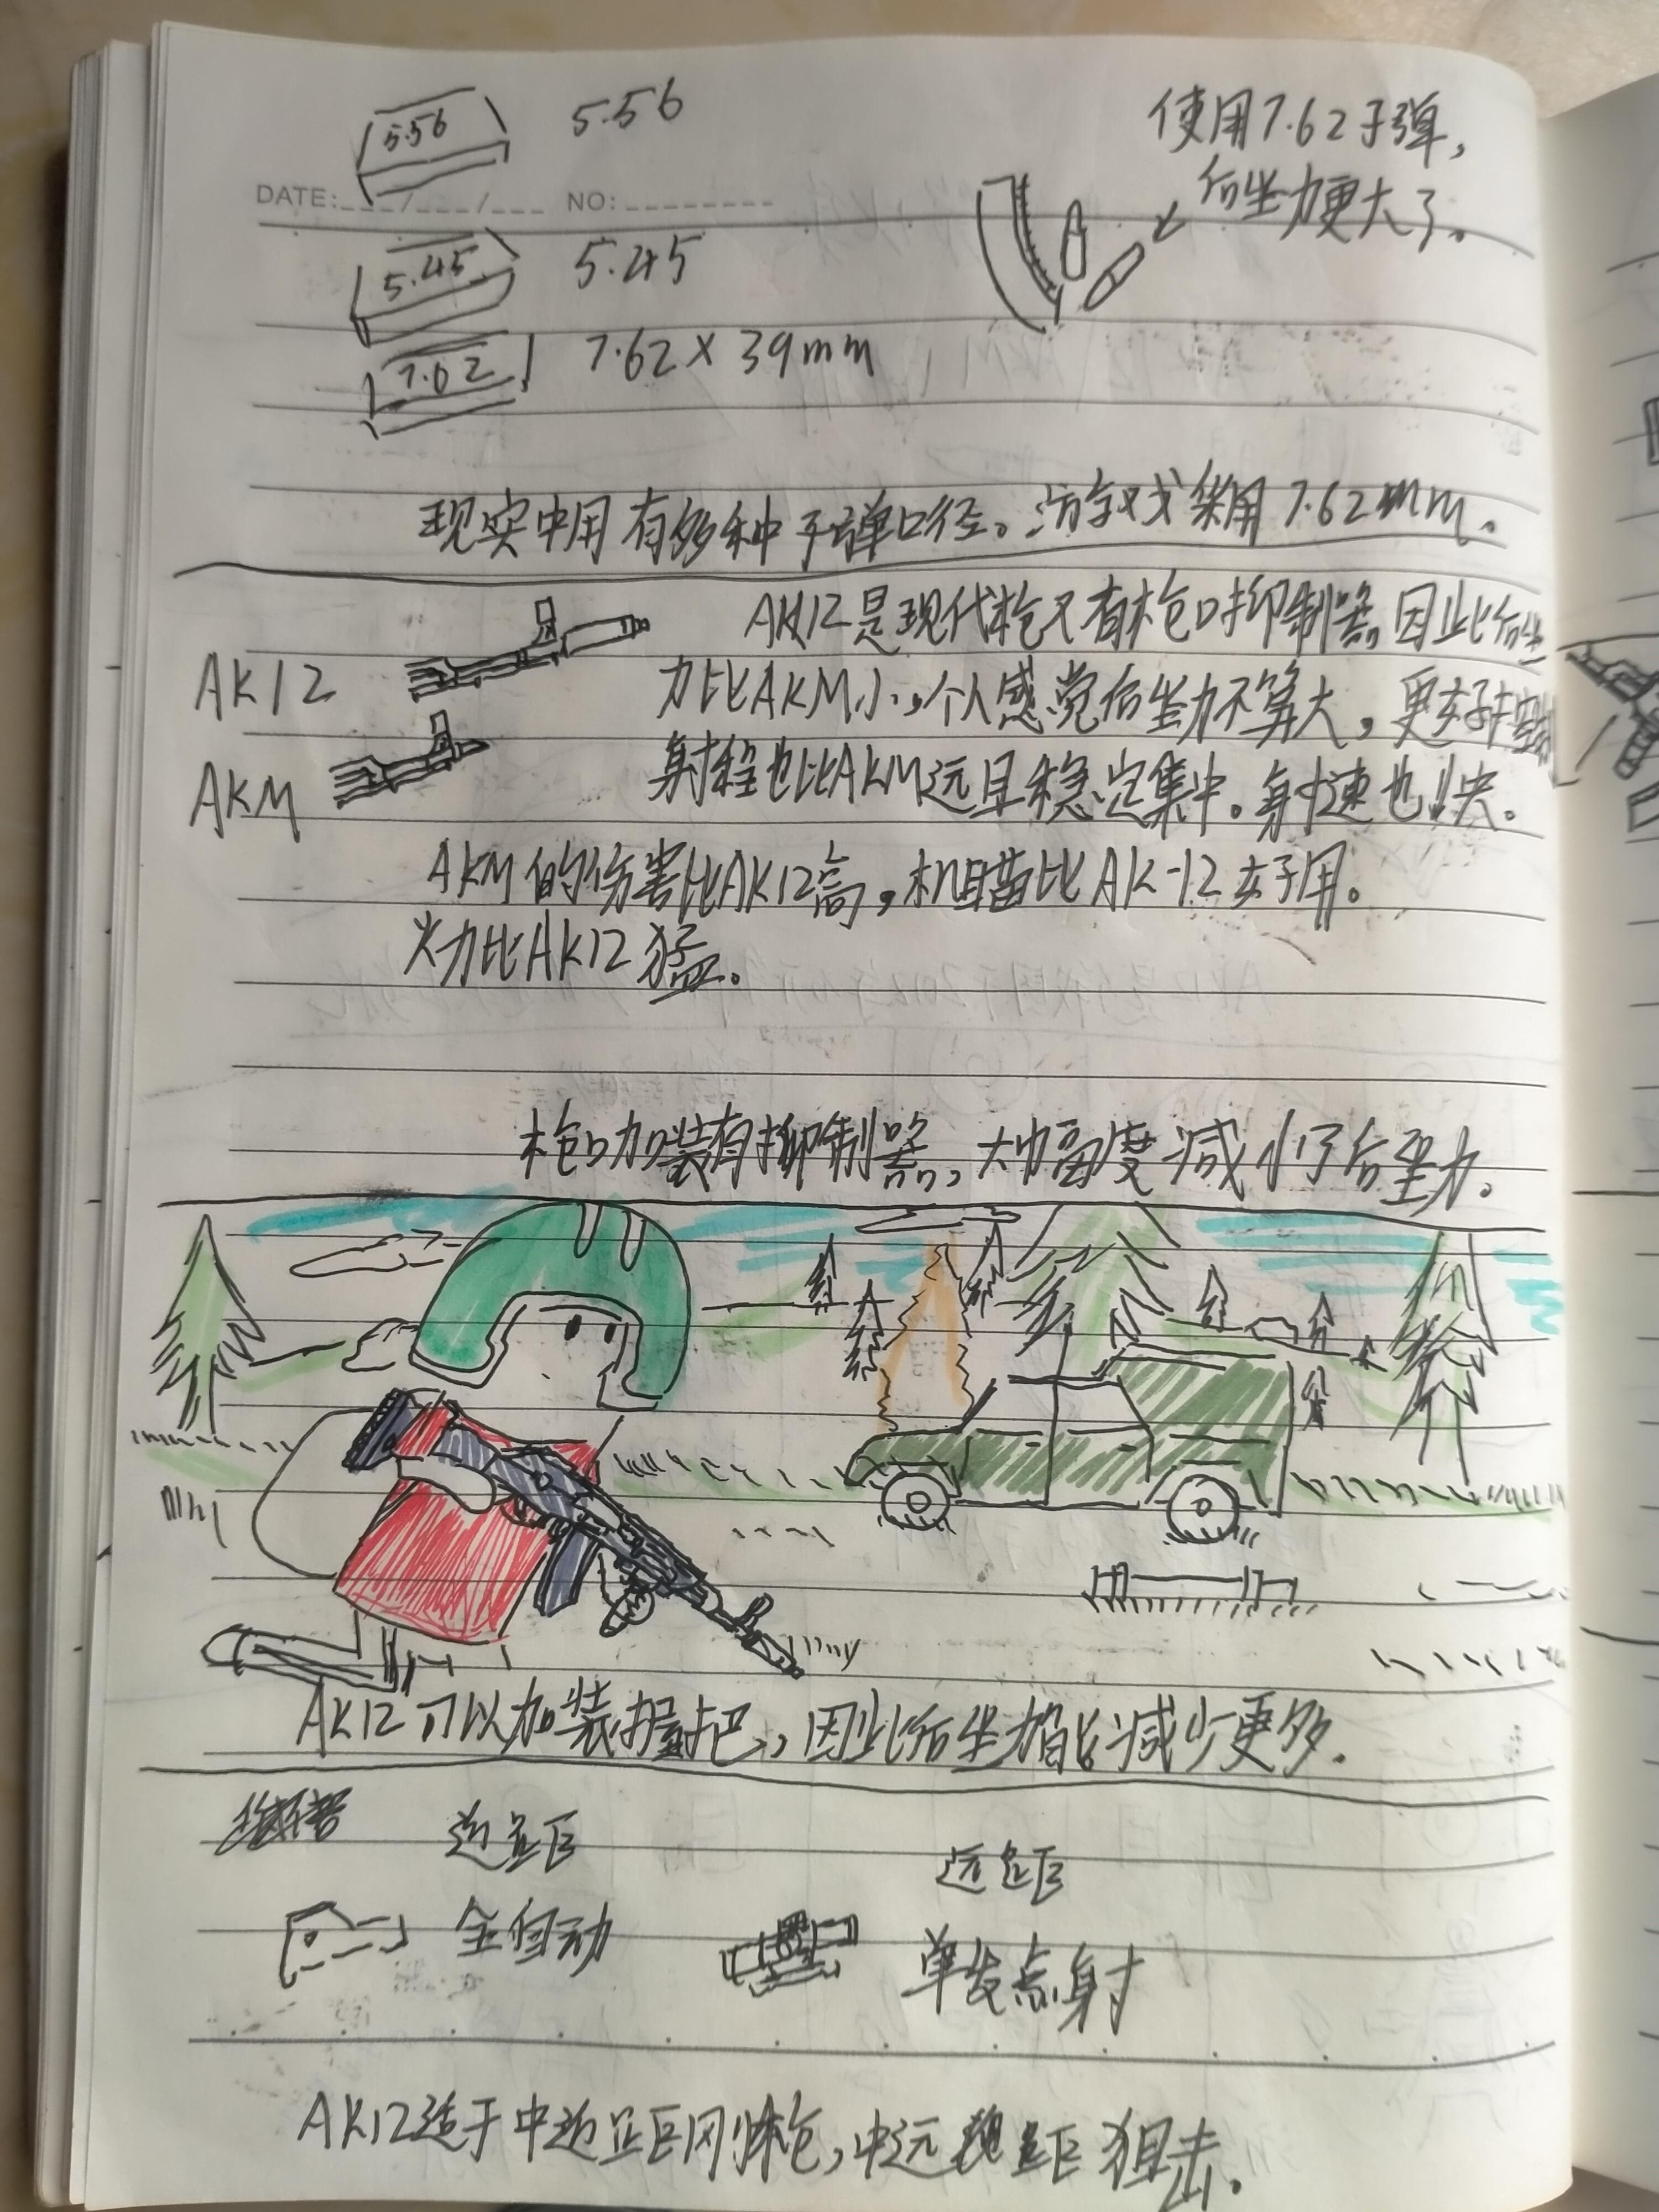 5.56 5.56
使用7.62子弹,
后坐力更大了。
DATE: / / NO:
5.45 5.45
7.62 7.62×39mm
现实中用有多种子弹口径。游戏采用7.62mm。
AK12是现代枪又有枪口抑制器,因此后坐
AK12 力比AKM小,个人感觉后坐力不算大,更好
AKM 射程也比AKM远且稳定集中。射速也快。
AKM的伤害比AK12高,机瞄比AK-12好用。
火力比AK12猛。
枪口加装有抑制器,大幅度减小了后坐力。
AK12可以加装握把,因此后坐力能减少更多.
近距
远距
全自动
单发点射
AK12适于中近距离刚枪,中远距狙击.